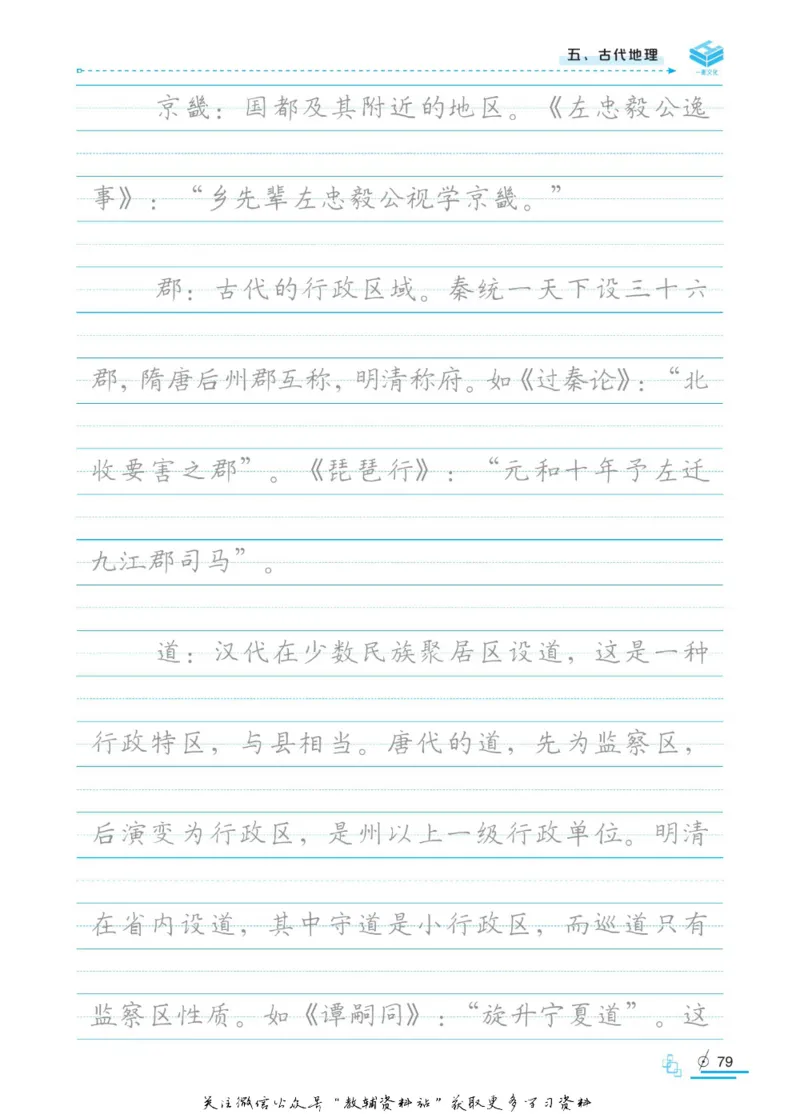 五、古代地理
一鼎文化
京畿：国都及其附近的地区。《左忠毅公逸
事》：“乡先辈左忠毅公视学京畿。”
郡：古代的行政区域。秦统一天下设三十六
郡，隋唐后州郡互称，明清称府。如《过秦论》：“北
收要害之郡”。《琵琶行》：“元和十年予左迁
九江郡司马”。
道：汉代在少数民族聚居区设道，这是一种
行政特区，与县相当。唐代的道，先为监察区，
后演变为行政区，是州以上一级行政单位。明清
在省内设道，其中守道是小行政区，而巡道只有
监察区性质。如《谭嗣同》：“旋升宁夏道”。这
79
关注微信公众号“教辅资料站”获取更多学习资料